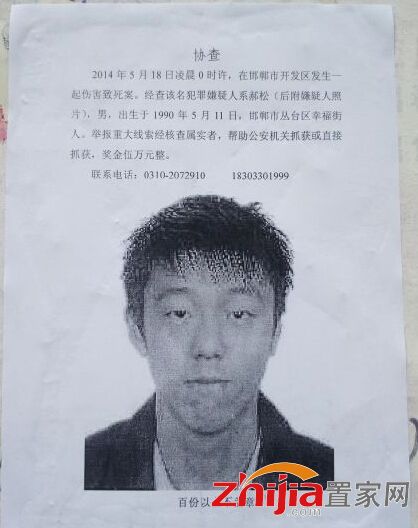 协查
2014 年 5 月 18 日凌晨 0 时许，在邯郸市开发区发生一
起伤害致死案。经查该名犯罪嫌疑人系郝松（后附嫌疑人照
片），男，出生于 1990 年 5 月 11 日，邯郸市丛台区幸福街
人。举报重大线索经核查属实者，帮助公安机关抓获或直接
抓获，奖金伍万元整。
联系电话：0310-2072910 18303301999
百份以
zhijia置家网
.com